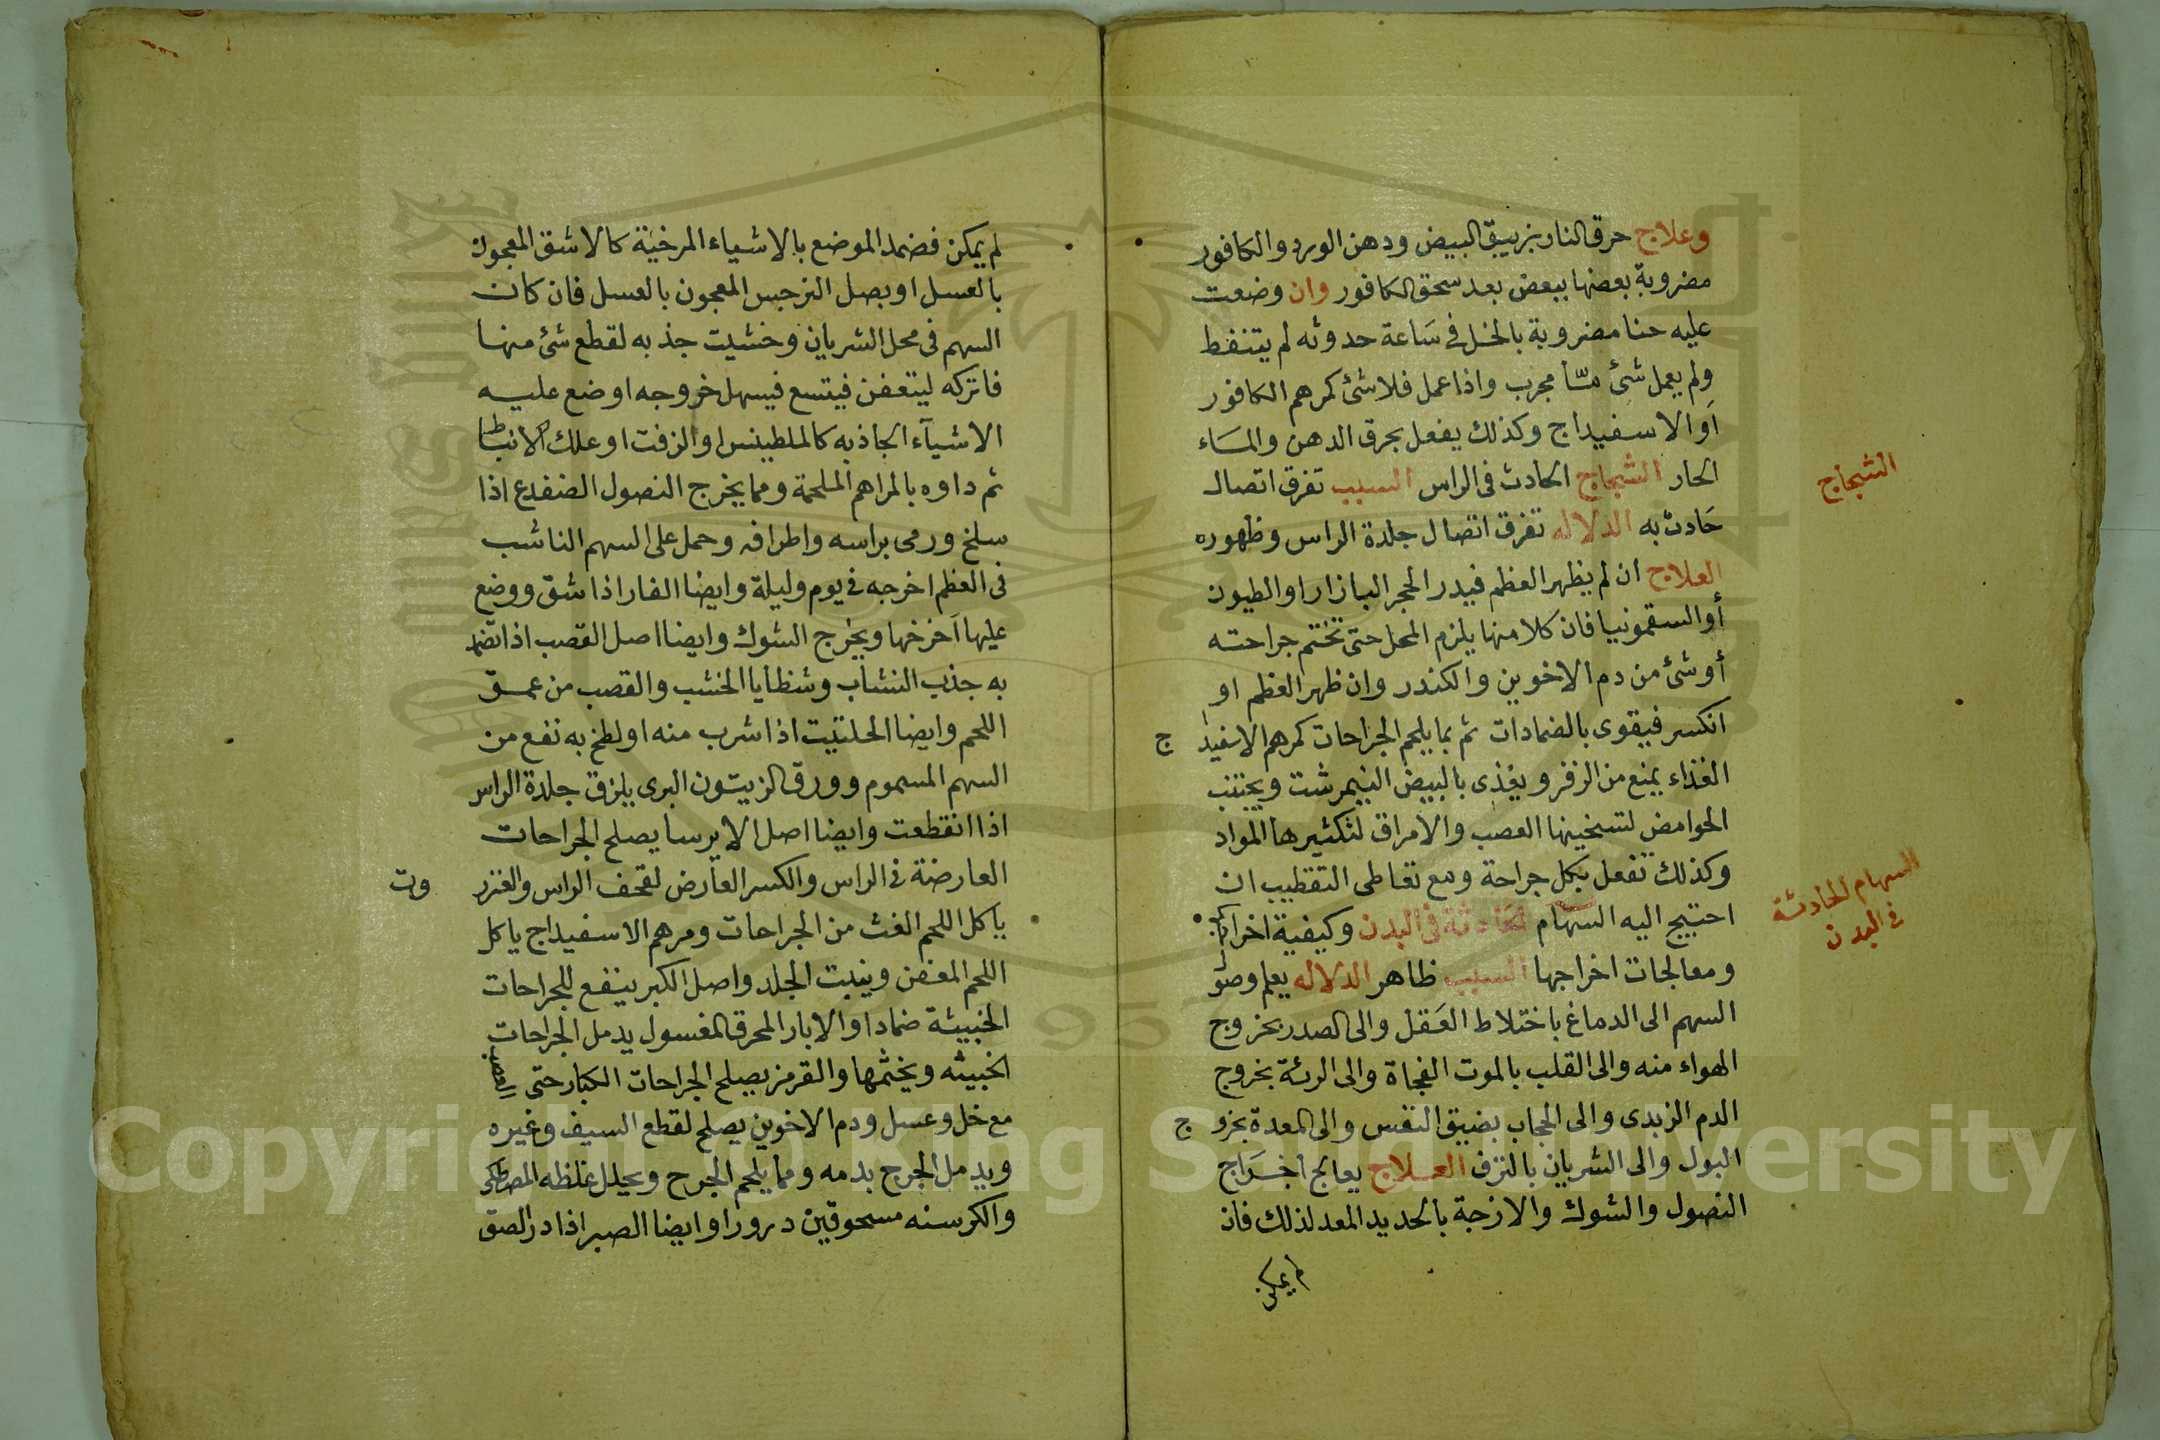 وعلاج حرق النار بزيبق البيض ودهن الورد والكافور
مضروبة بعضها ببعض بعد سحق الكافور وان وضعت
عليه حنا مضروبة بالخل في سَاعة حدوثه لم يتنفط
ولم يعمل شئ مّا مجرب واذا عمل فلا شئ كمرهم الكافور
اَو الاسفيداج وكذلك يفعل بحرق الدهن والمَاء
الحار الشجاج الحادث في الراس السبب تفرق اتصال
حَادث به الدلاله تفرق اتصال جلدة الراس وظهوره
العلاج ان لم يظهر العظم فيدر الحجر البازار او الطيون
أو السقمونيا فان كلا منها يلزم المحل حتى تختم جراحته
أو شئ من دم الاخوين والكندر وان ظهر العظم او
انكسر فيقوى بالضمادات ثم بما يلحم الجراحات كمرهم الاسفيدا ج
الغذاء يمنع من الزفر ويغذى بالبيض النيمرشت ويجتنب
الحوامض لتسخينها العصب والامراق لتكثيرها المواد
وكذلك تفعل بكل جراحة ومع تعاطى التقطيب ان
احتيج اليه السهام الحادثة في البدن وكيفية اخراجها
ومعالجات اخراجها السبب ظاهر الدلاله يعلم وصول
السهم الى الدماغ باختلاط العَقل والى الصدر بخروج
الهواء منه والى القلب بالموت الفجاة والى الرئة بخروج
الدم الزبدى والى الحجاب بضيق النفس والى المعدة بخرو ج
البول والى الشريان بالنزف العلاج يعالج اخرَاج
النصول والشوك والازجة بالحديد المعد لذلك فان
لم يمكن
الشجاج
السهام الحادثة
في البدن
لم يمكن فضمد الموضع بالاشياء المرخية كالاشق المعجون
بالعسل او بصل النرجس المعجون بالعسل فان كان
السهم في محل الشريان وخشيت جذبه لقطع شئ منها
فاتركه ليتعفن فيتسع فيسهل خروجه او ضع عليه
الاشيآء الجاذبه كالملطينس او الزفت او علك الانباط
ثم داوه بالمراهم الملحمة ومما يخرج النصول الضفدع اذا
سلخ ورمى براسه واطرافه وحمل على السهم الناشب
في العظم اخرجه في يوم وليلة وايضا الفار اذا شق ووضع
عليها اَخرجها ويخرج الشوك وايضا اصل القصب اذا تضمد
به جذب النشاب وشظايا الخشب والقصب من عمق
اللحم وايضا الحلتيت اذا شرب منه او لطخ به نفع من
السهم المسموم وورق الزيتون البرى يلزق جلدة الراس
اذا انقطعت وايضا اصل الايرسا يصلح الجراحات
العارضة في الراس والكسر العارض لقحف الراس والعنزر وت
ياكل اللحم الغث من الجراحات ومرهم الاسفيداج ياكل
اللحم المعفن وينبت الجلد واصل الكبر ينفع للجراحات
الخبيثة ضمادا والابار المحرق المغسول يدمل الجراحات
الخبيثه ويختمها والقرمز يصلح الجراحات الكبار حتى
مع خل وعسل ودم الاخوين يصلح لقطع السيف وغيره
ويدمل الجرح بدمه ومما يلحم الجرح ويحلل غلظه المصطكى
والكرسنه مسحوقين درورا وايضا الصبر اذا در الصق
Copyright © King Saud University